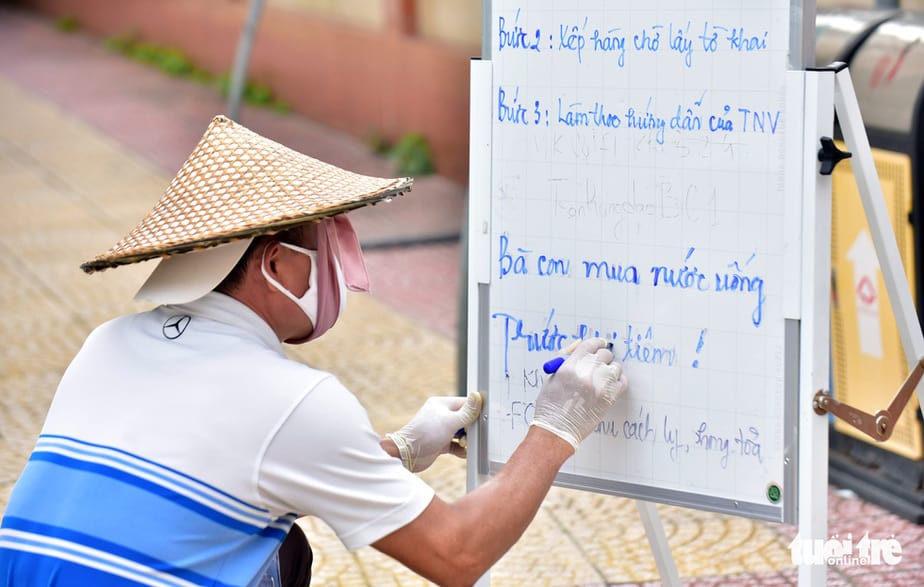 Bước 2: Xếp hàng chờ lấy tờ khai
Bước 3: Làm theo hướng dẫn của TNV
Trần Hưng Đạo BC1
Bà con mua nước uống
Trước khi tiêm!
cách ly, phong tỏa
tuổi trẻ
online